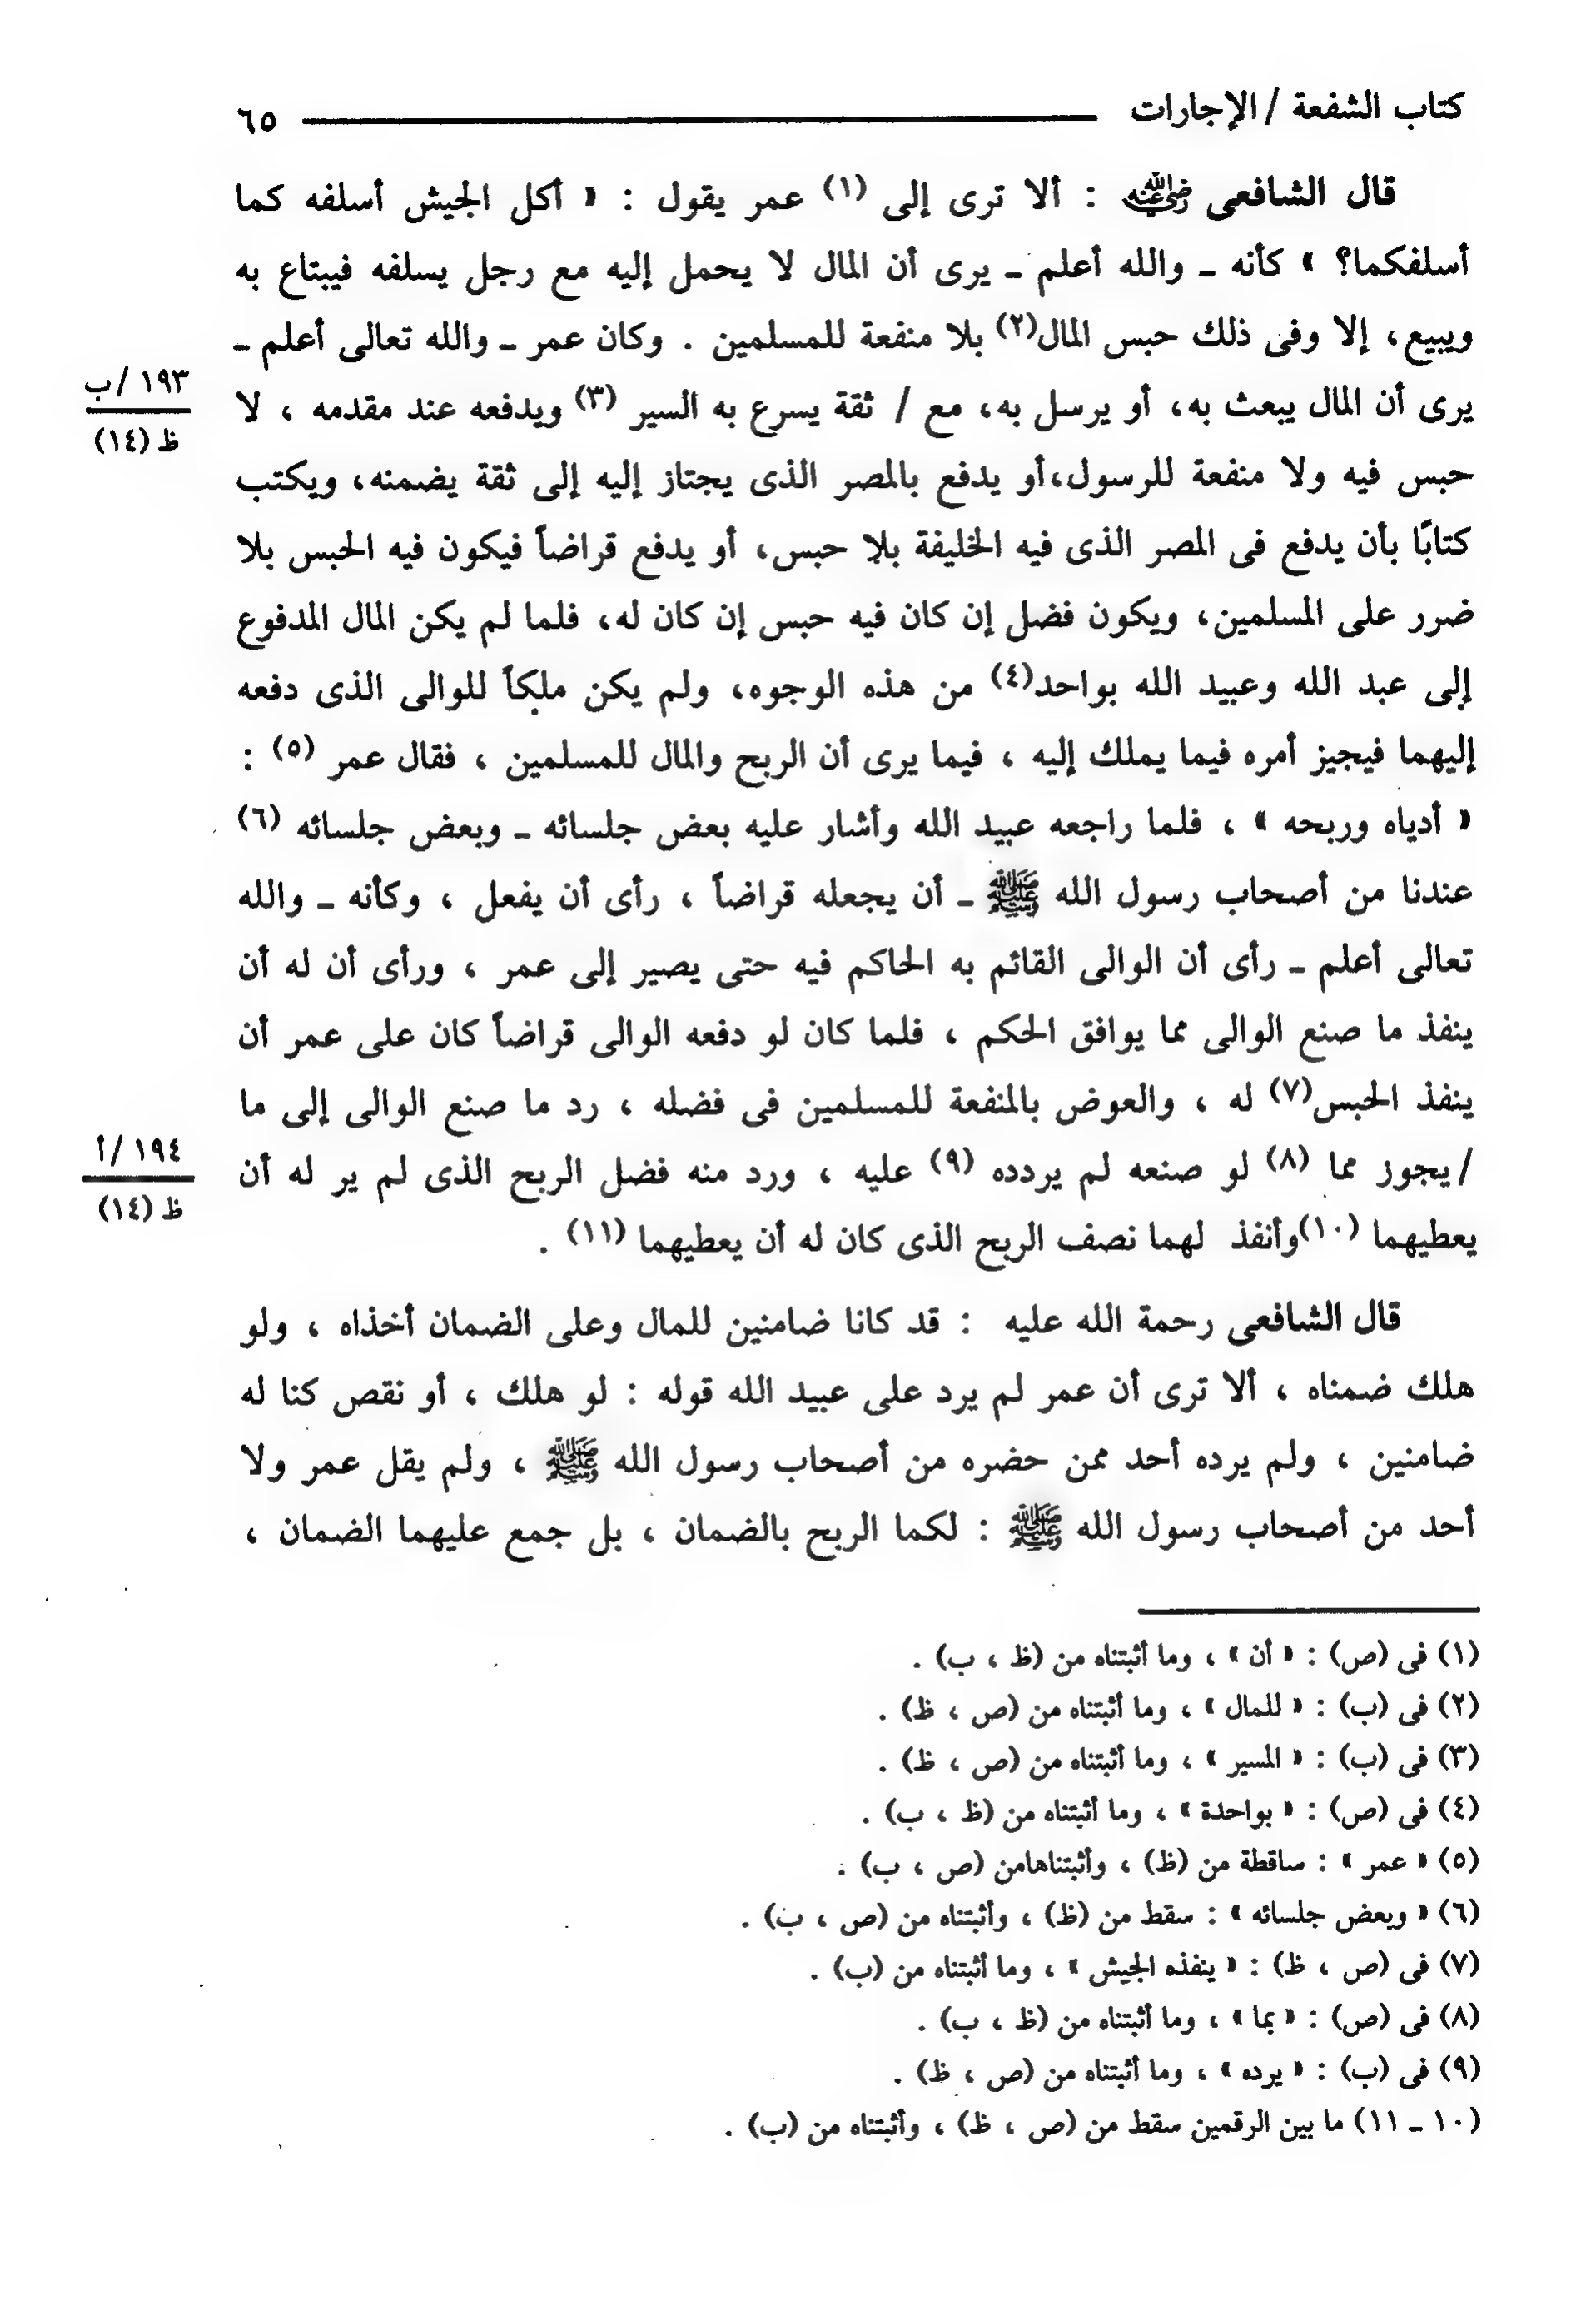 كتاب الشفعة / الإجارات ٦٥
قال الشافعى رضي الله عنه : ألا ترى إلى (١) عمر يقول : « أكل الجيش أسلفه كما
أسلفكما؟ » كأنه ـ والله أعلم ـ يرى أن المال لا يحمل إليه مع رجل يسلفه فيبتاع به
ويبيع، إلا وفى ذلك حبس المال(٢) بلا منفعة للمسلمين . وكان عمر ـ والله تعالى أعلم ـ
يرى أن المال يبعث به، أو يرسل به، مع / ثقة يسرع به السير (٣) ويدفعه عند مقدمه ، لا
١٩٣ /ب
ظ (١٤)
حبس فيه ولا منفعة للرسول،أو يدفع بالمصر الذى يجتاز إليه إلى ثقة يضمنه، ويكتب
كتابًا بأن يدفع فى المصر الذى فيه الخليفة بلا حبس، أو يدفع قراضاً فيكون فيه الحبس بلا
ضرر على المسلمين، ويكون فضل إن كان فيه حبس إن كان له، فلما لم يكن المال المدفوع
إلى عبد الله وعبيد الله بواحد(٤) من هذه الوجوه، ولم يكن ملكاً للوالى الذى دفعه
إليهما فيجيز أمره فيما يملك إليه ، فيما يرى أن الربح والمال للمسلمين ، فقال عمر (٥) :
« أدياه وربحه » ، فلما راجعه عبيد الله وأشار عليه بعض جلسائه ـ وبعض جلسائه (٦)
عندنا من أصحاب رسول الله ﷺ ـ أن يجعله قراضاً ، رأى أن يفعل ، وكأنه ـ والله
تعالى أعلم ـ رأى أن الوالى القائم به الحاكم فيه حتى يصير إلى عمر ، ورأى أن له أن
ينفذ ما صنع الوالى مما يوافق الحكم ، فلما كان لو دفعه الوالى قراضاً كان على عمر أن
ينفذ الحبس(٧) له ، والعوض بالمنفعة للمسلمين فى فضله ، رد ما صنع الوالى إلى ما
/ يجوز مما (٨) لو صنعه لم يردده (٩) عليه ، ورد منه فضل الربح الذى لم ير له أن
١٩٤ /أ
ظ (١٤)
يعطيهما (١٠)وأنفذ لهما نصف الربح الذى كان له أن يعطيهما (١١) .
قال الشافعى رحمة الله عليه : قد كانا ضامنين للمال وعلى الضمان أخذاه ، ولو
هلك ضمناه ، ألا ترى أن عمر لم يرد على عبيد الله قوله : لو هلك ، أو نقص كنا له
ضامنين ، ولم يرده أحد ممن حضره من أصحاب رسول الله ﷺ ، ولم يقل عمر ولا
أحد من أصحاب رسول الله ﷺ : لكما الربح بالضمان ، بل جمع عليهما الضمان ،
(١) فى (ص) : « أن » ، وما أثبتناه من (ظ ، ب) .
(٢) فى (ب) : « للمال » ، وما أثبتناه من (ص ، ظ) .
(٣) فى (ب) : « المسير » ، وما أثبتناه من (ص ، ظ) .
(٤) فى (ص) : « بواحدة » ، وما أثبتناه من (ظ ، ب) .
(٥) « عمر » : ساقطة من (ظ) ، وأثبتناهامن (ص ، ب) .
(٦) « وبعض جلسائه » : سقط من (ظ) ، وأثبتناه من (ص ، ب) .
(٧) فى (ص ، ظ) : « ينفذه الجيش » ، وما أثبتناه من (ب) .
(٨) فى (ص) : « بما » ، وما أثبتناه من (ظ ، ب) .
(٩) فى (ب) : « يرده » ، وما أثبتناه من (ص ، ظ) .
(١٠ ـ ١١) ما بين الرقمين سقط من (ص ، ظ) ، وأثبتناه من (ب) .